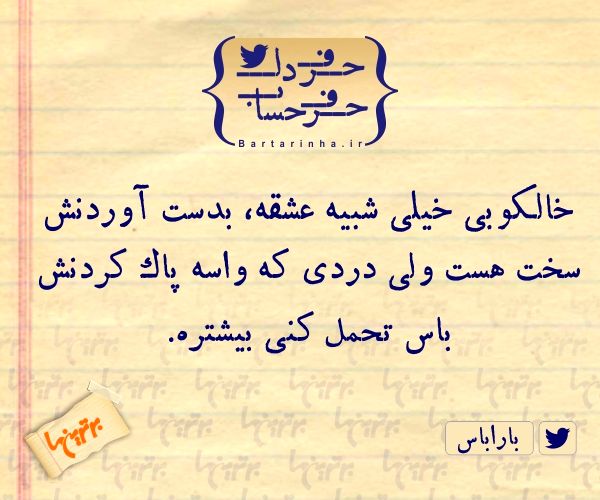 حرف دل
حرف حساب
Bartarinha.ir
خالکوبی خیلی شبیه عشقه، بدست آوردنش
سخت هست ولی دردی که واسه پاک کردنش
باس تحمل کنی بیشتره.
باراباس
برترینها